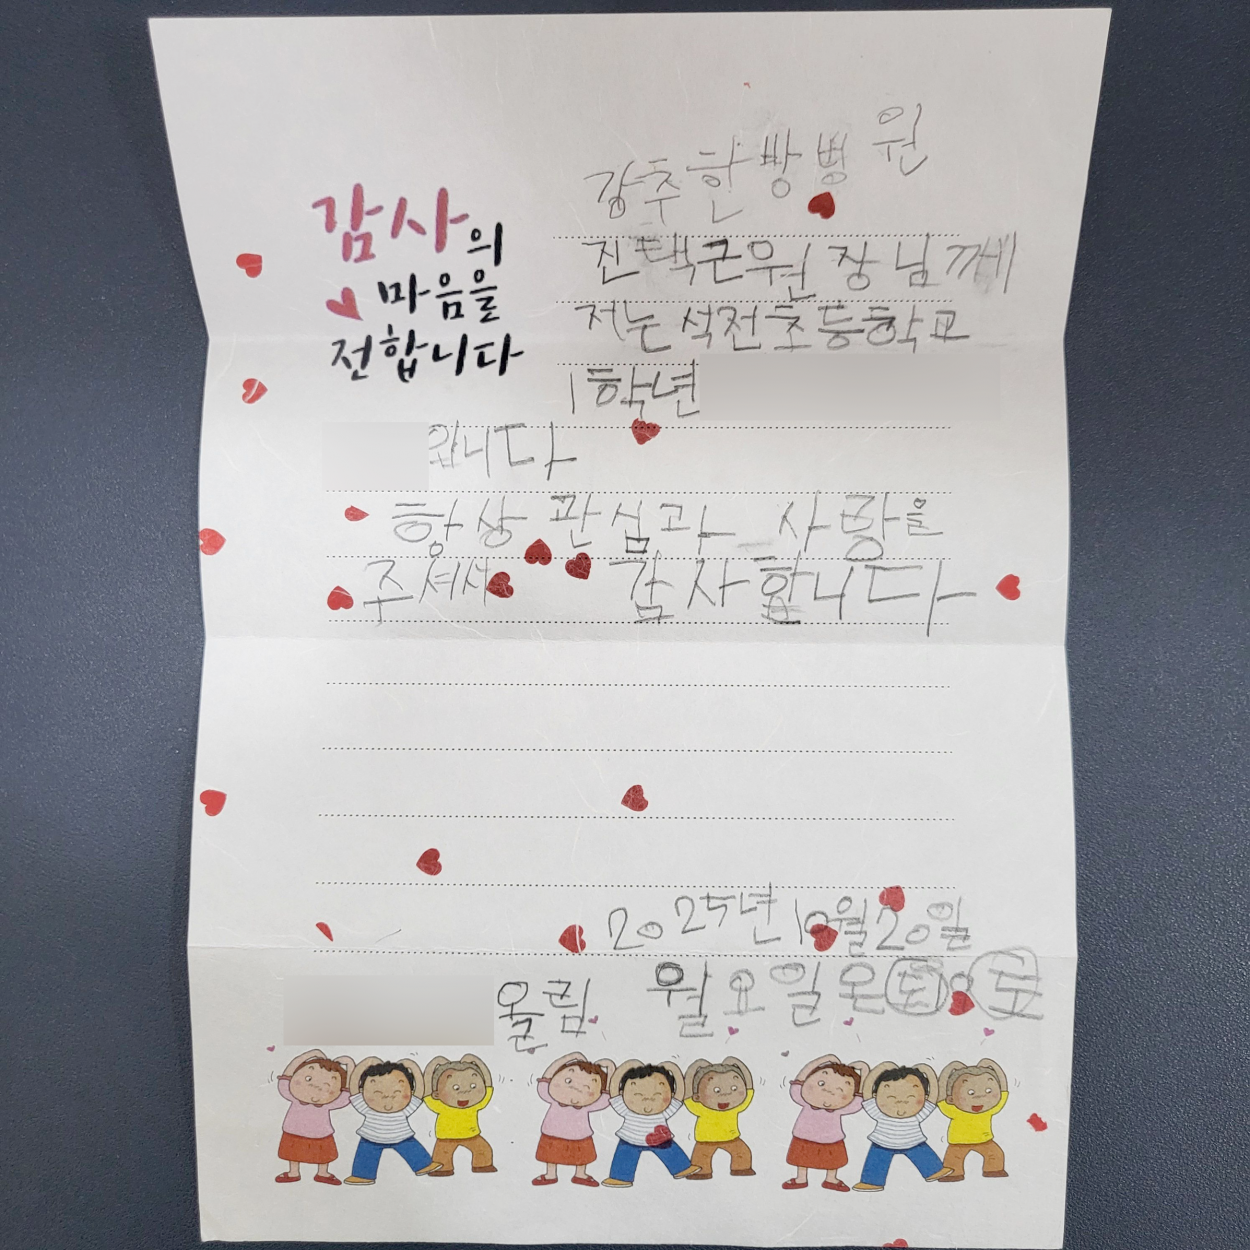 감사의
마음을
전합니다
강추한방병원
진택근원장님께
저는 석전초등학교
1학년
입니다
항상 관심과 사랑을
주셔서 감사합니다
2025년 10월 20일
월요일
올림